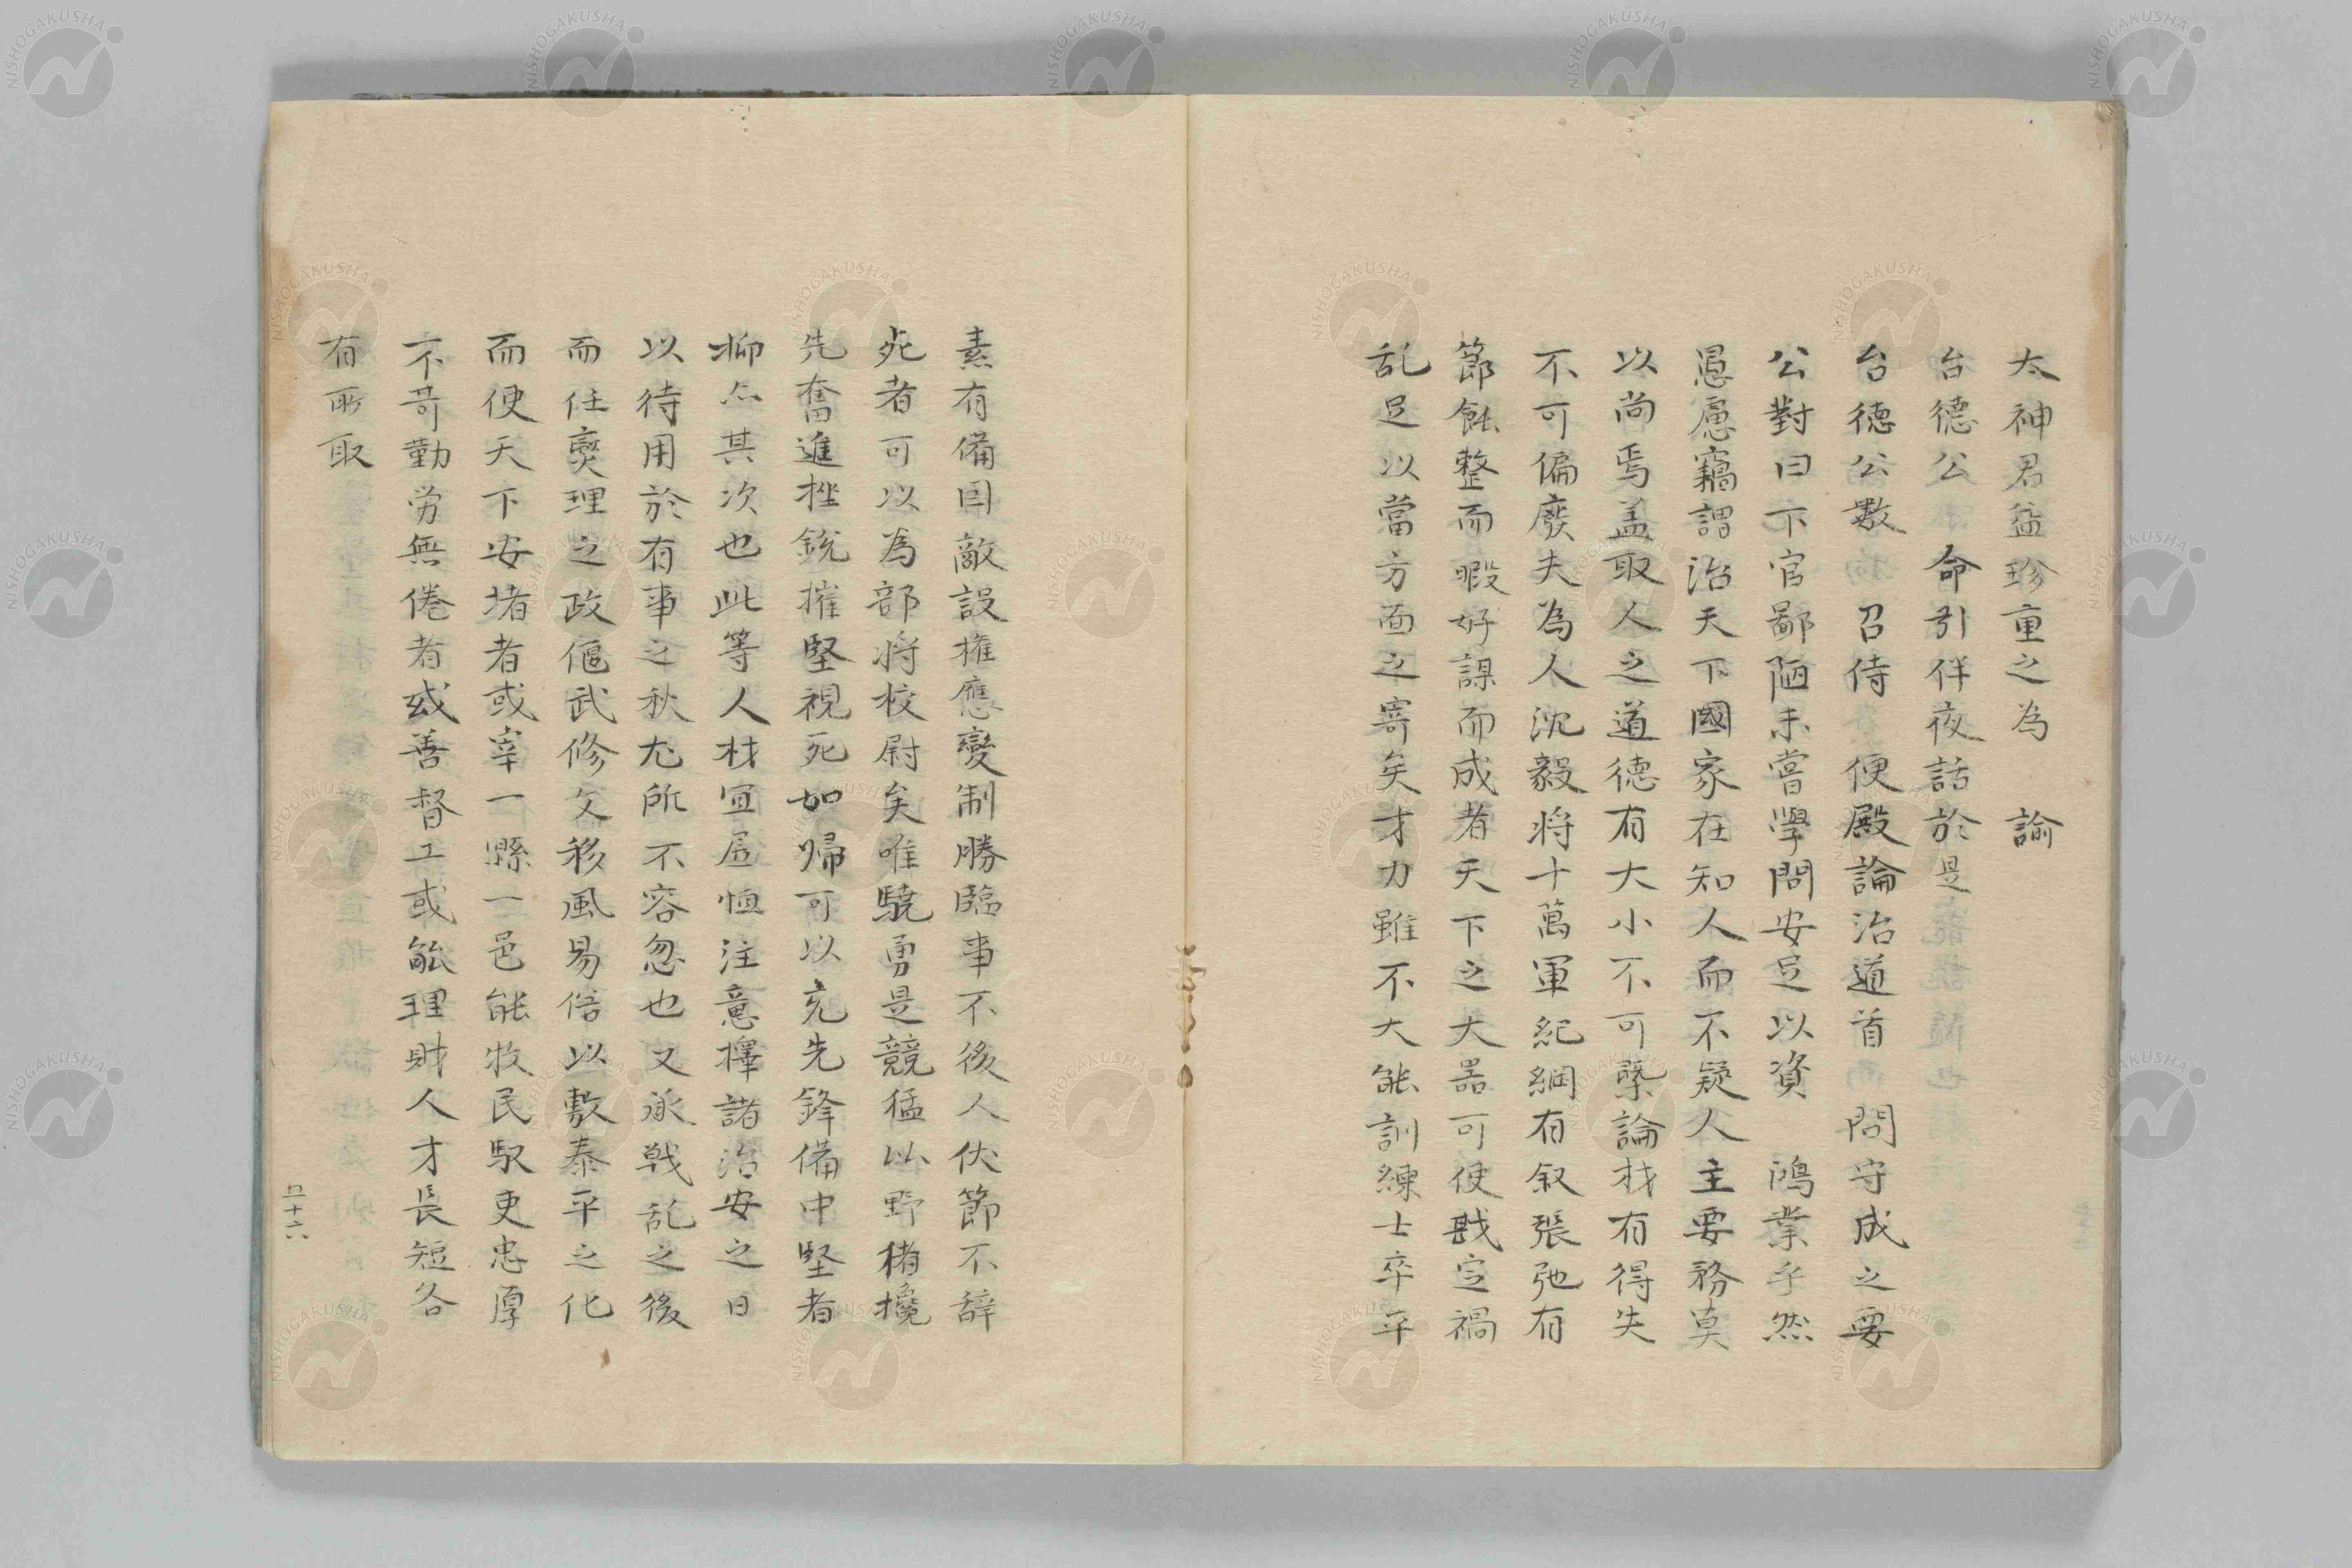 太神君益珍重之為　諭
台德公　命引伴夜話於是
台德公數　召侍　便殿論治道首　問守成之要
公對曰下官鄙陋未嘗學問安足以資　鴻業乎然
愚慮竊謂治天下國家在知人而不疑人主要務莫
以尚焉盖取人之道德有大小不可槩論材有得失
不可偏廢夫為人沈毅将十萬軍紀綱有叙張弛有
節飭整而暇好謀而成者天下之大器可使戡定禍
乱足以當方面之寄矣才力雖不大能訓練士卒平
素有備因敵設権應變制勝臨事不後人伏節不辞
死者可以為部将校尉矣唯驍勇是競猛以野猪攙
先奮進挫銳摧堅視死如帰可以充先鋒備中堅者
抑亦其次也此等人材宜愿恤注意擇諸治安之日
以待用於有事之秋尤所不容忽也又承戦乱之後
而任爕理之政偃武修文移風易俗以敷泰平之化
而使天下安堵者或宰一縣一邑能牧民馭吏忠厚
不苛勤労無倦者或善督工或能理財人才長短各
有所取
二十六
NISHOGAKUSHA